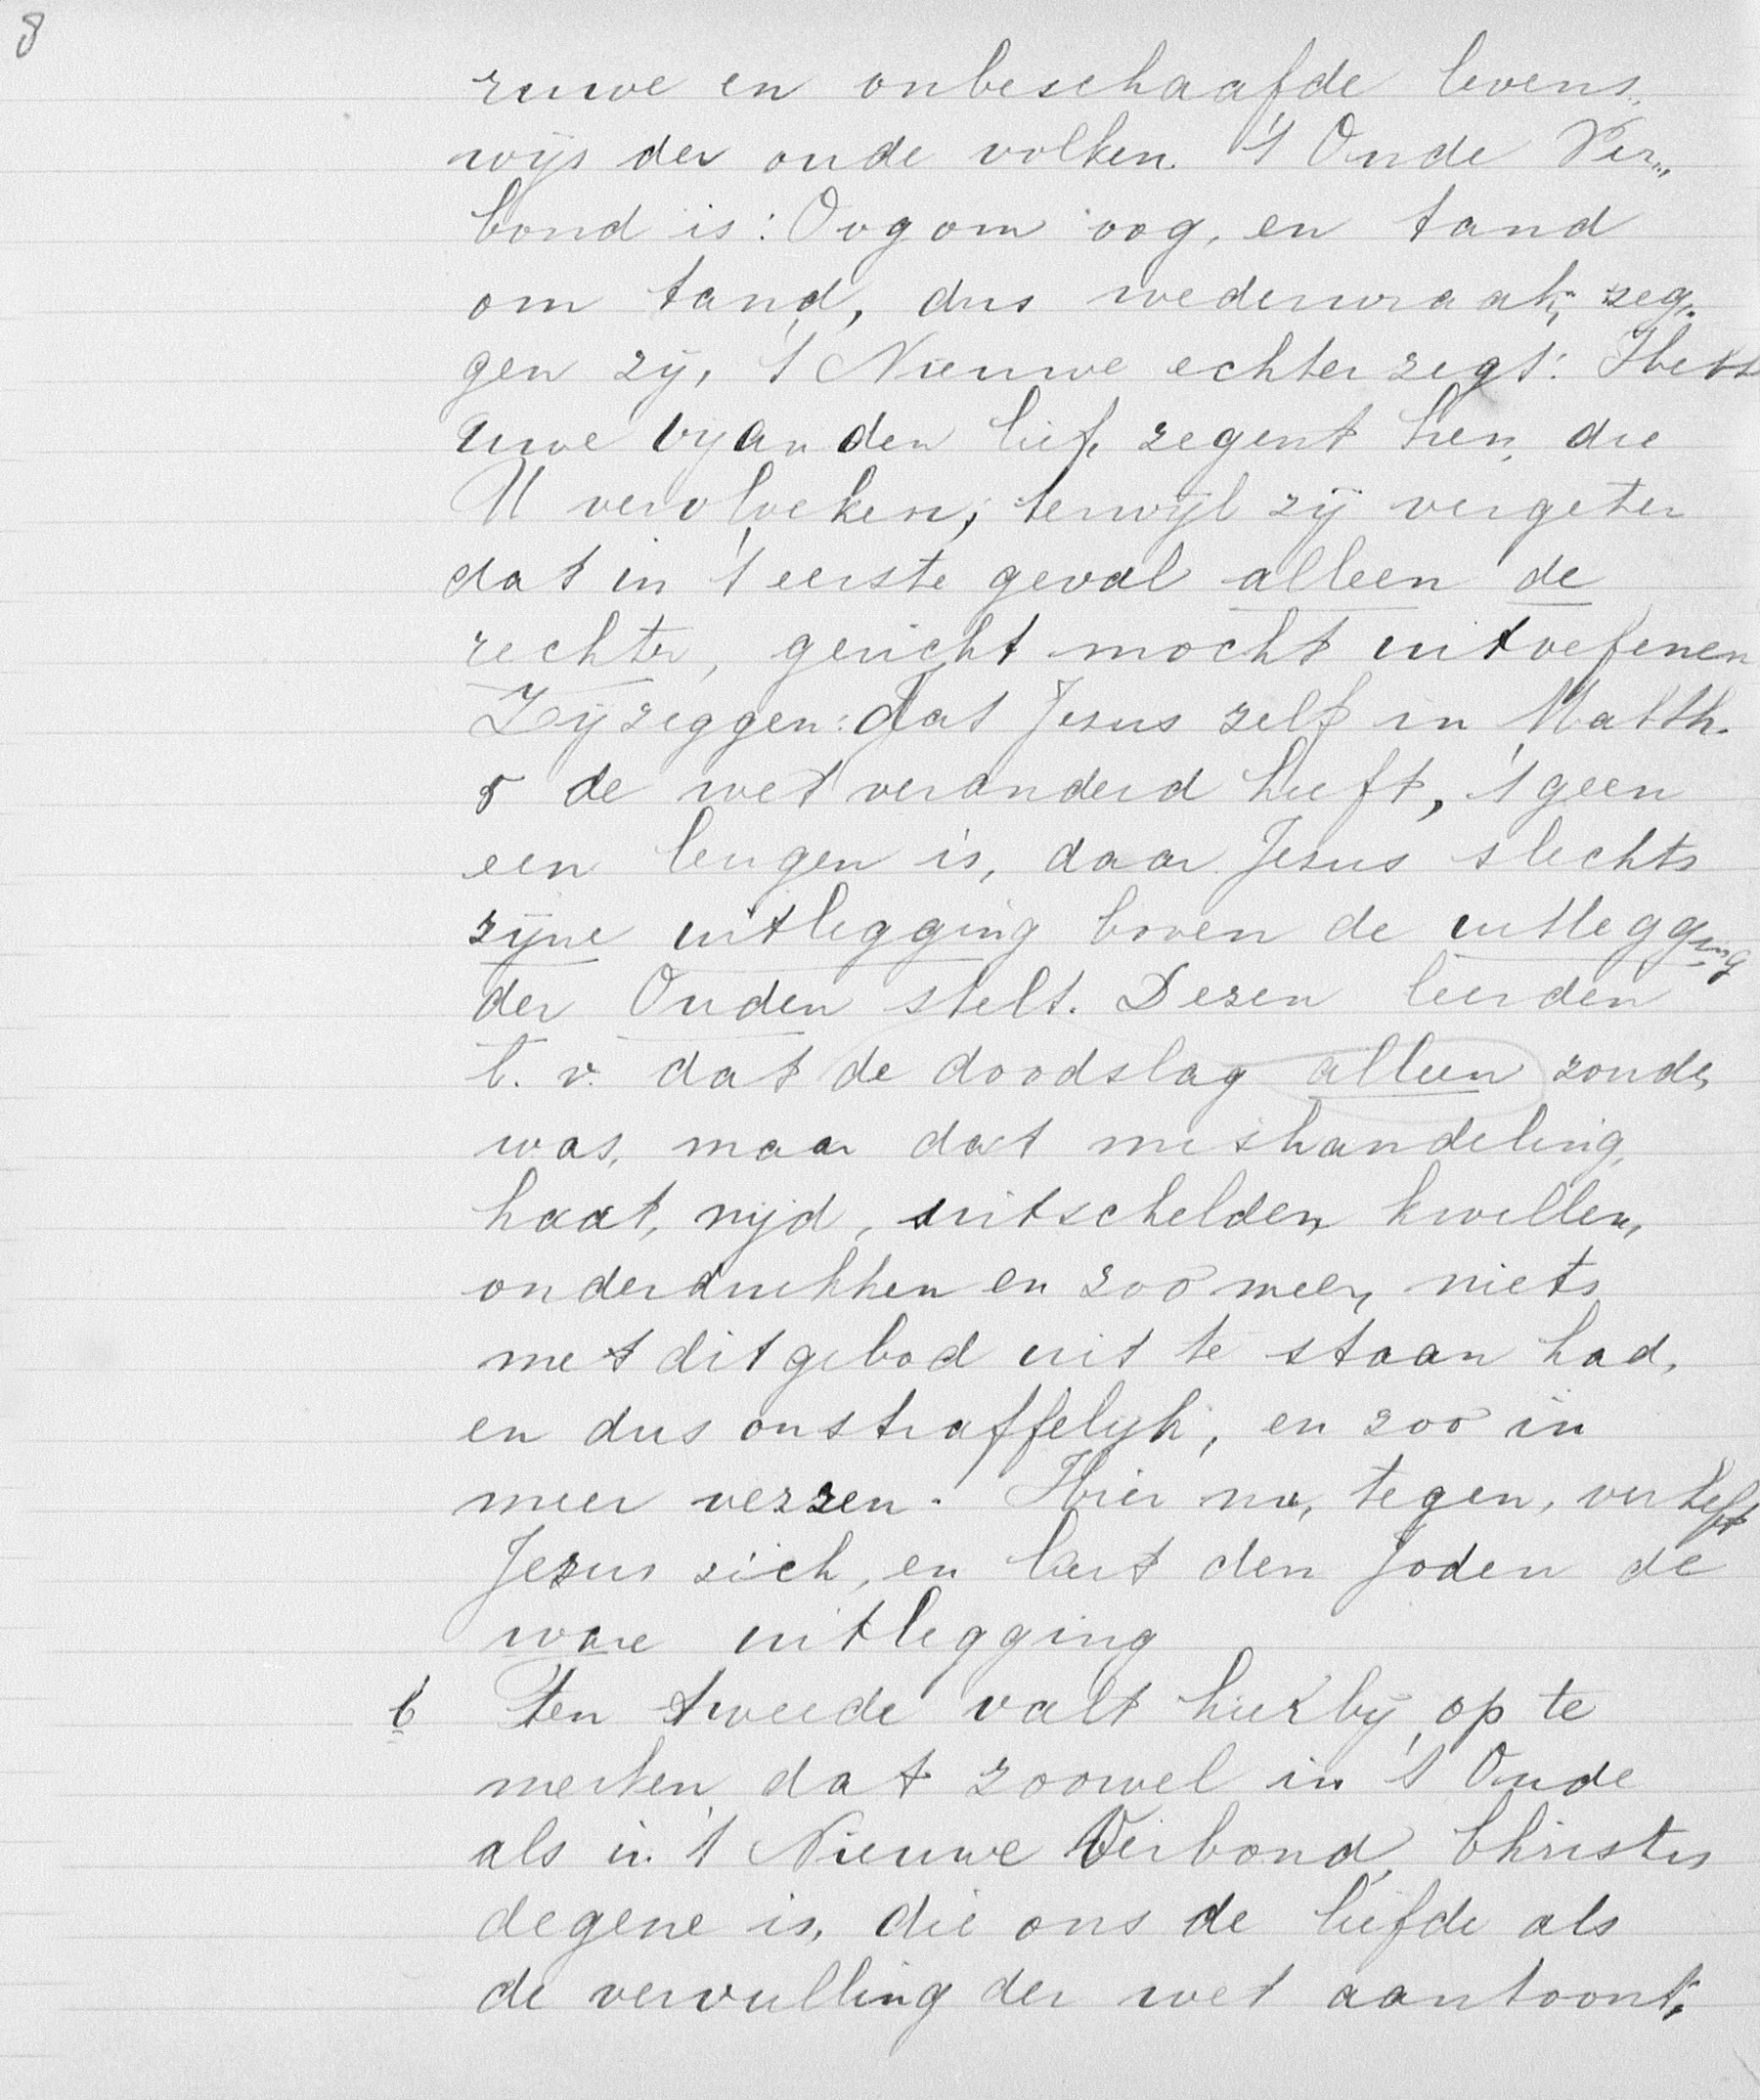 8
ruwe en onbeschaafde levens„
wijs der oude volken. 't Oude Ver„
bond is: Oog om oog, en tand
om tand, dus wederwraak, zeg„
gen zij, 't Nieuwe echter zegt: Hebt
uwe vijanden lief, zegent hen, die
U vervloeken; terwijl zij vergeten
dat in 't eerste geval alleen de
rechter, gericht mocht uitoefenen
Zij zeggen: dat Jesus zelf in Matth.
5 de wet veranderd heeft, 't geen
een leugen is, daar Jesus slechts
zijne uitlegging boven de uitlegging
der Ouden stelt. Dezen leerden
b. v. dat de doodslag alleen zonde,
was, maar dat mishandeling,
haat, nijd, uitschelden, kwellen,
onderdrukken en zoo meer, niets
met dit gebod uit te staan had,
en dus onstraffelijk, en zoo in
meer verzen. Hier nu, tegen, verheft
Jezus zich, en leert den Joden de
ware uitlegging
b Ten tweede valt hierbij op te
merken, dat zoowel in 't Oude
als in 't Nieuwe Verbond, Christus
degene is, die ons de liefde als
de vervulling der wet aantoont,